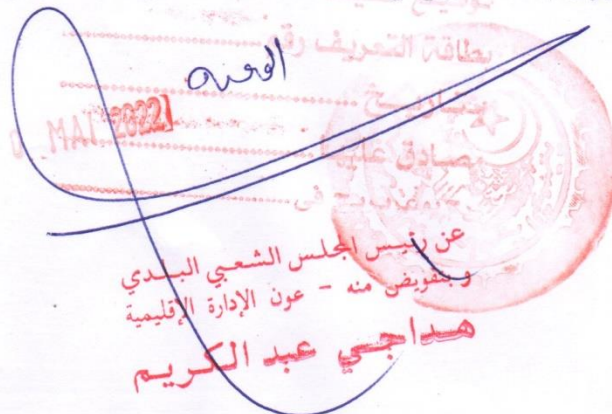 بطاقة التعريف رقم
بتاريخ
MAI 2022
مصادق عليه
في
عن رئيس المجلس الشعبي البلدي
وبتفويض منه - عون الإدارة الإقليمية
هداجي عبد الكريم